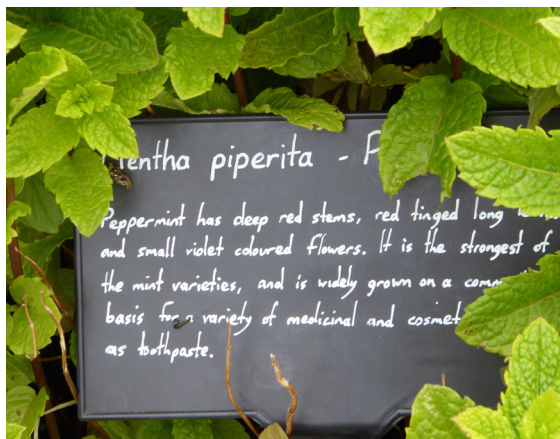 Mentha piperita - P
Peppermint has deep red stems, red tinged long
and small violet coloured flowers. It is the strongest of
the mint varieties, and is widely grown on a comm
basis for a variety of medicinal and cosmet
as toothpaste.